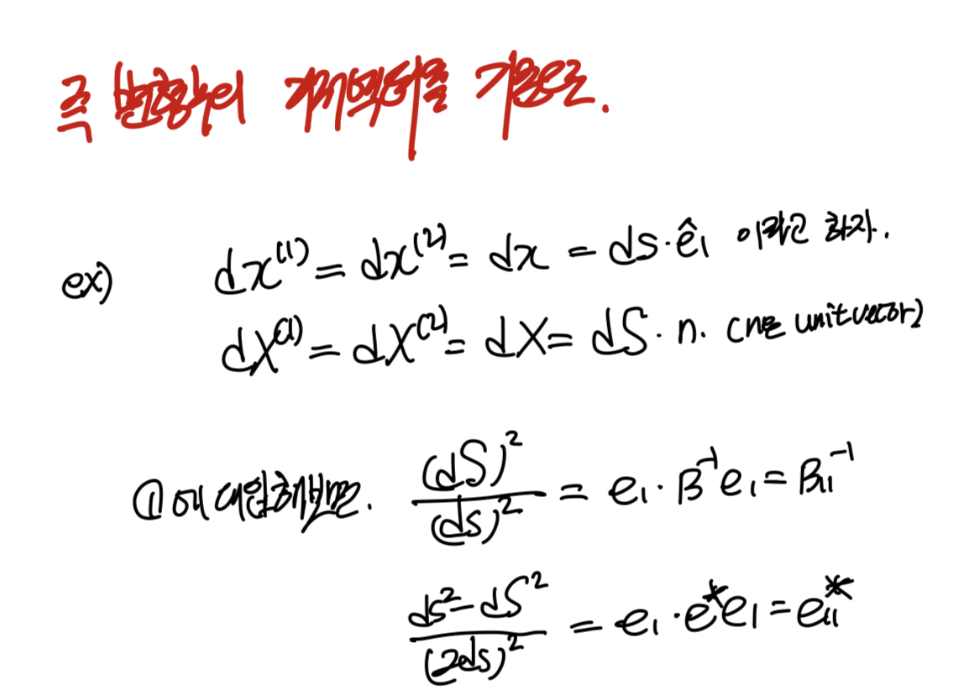 즉 변형후의 거리벡터를 기준으로.
ex) dx⁽¹⁾ = dx⁽²⁾ = dx = ds·ê₁ 이라고 하자.
dX⁽¹⁾ = dX⁽²⁾ = dX = dS·n. (n은 unit vector)
①에 대입해보면. (dS)²/(ds)² = e₁·B⁻¹e₁ = B₁₁⁻¹
ds²-dS²/(2ds)² = e₁·e*e₁ = e₁₁*